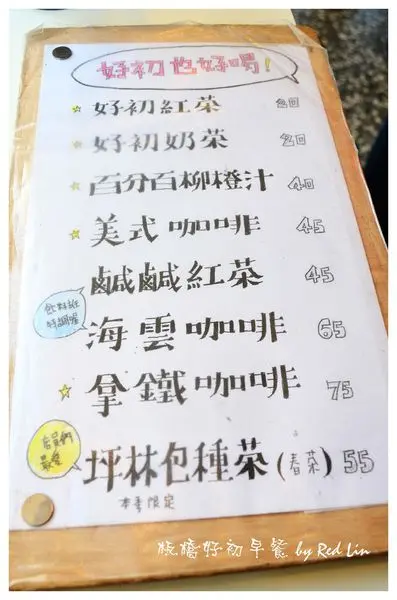 好初也好喝!
☆ 好初紅茶 20
☆ 好初奶茶 20
☆ 百分百柳橙汁 40
☆ 美式咖啡 45
鹹鹹紅茶 45
飲料班
特調喔
海雲咖啡 65
☆ 拿鐵咖啡 75
店員們
最愛
坪林包種茶(春茶) 55
本季限定
板橋好初早餐 by Red Lin